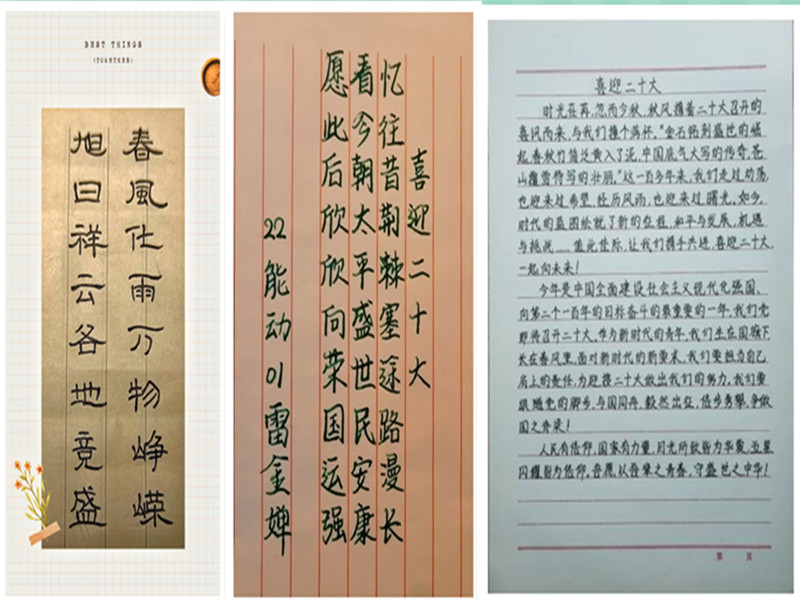 BEST THINGS
(TOGETHER)
春風仕雨万物峥嵘
旭日祥云各地竞盛
喜迎二十大
忆往昔荆棘塞途路漫长
看今朝太平盛世民安康
愿此后欣欣向荣国运强
22能动01雷金婵
喜迎二十大
时光荏苒,忽而今秋,秋风携着二十大召开的
喜讯而来,与我们撞个满怀。"金石铭刻盛世的崛
起,春秋竹简泛黄入了泥,中国底气大写的传奇,苍
山攥雪竹写的壮丽。"这一百多年来,我们走过动荡,
也迎来过希望,经历风雨,也迎来过曙光。如今,
时代的蓝图绘就了新的征程,和平与发展,机遇
与挑战……值此佳际,让我们携手共进,喜迎二十大,
一起向未来!
今年是中国全面建设社会主义现代化强国、
向第二个一百年的目标奋斗的最重要的一年,我们党
即将召开二十大,作为新时代的青年,我们生在国旗下
长在春风里,面对新时代的新要求,我们要担当自己
肩上的责任,为迎接二十大做出我们的努力,我们要
跟随党的脚步,与国同舟,毅然出征,信步秀攀,争做
国之脊梁!
人民有信仰,国家有力量,目光所致皆为华夏,五星
闪耀皆为信仰,吾愿,以吾辈之青春,守盛世之中华!
第 页